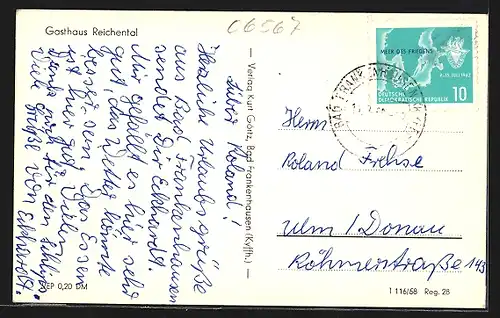 Gasthaus Reichental
C6567
Lieber Roland!
Herzliche Urlaubsgrüße
aus Bad Frankenhausen
sendet Dir Eckhardt.
Mir gefällt es hier sehr
gut, das Wetter könnte
besser sein. Das Essen
ist hier gut. Vielen
Dank auch für den
Viele Grüße von Eckhardt.
EVP 0,20 DM
— Verlag Kurt Görtz, Bad Frankenhausen (Kyffh.) —
MEER DES FRIEDENS
8.-15. JULI 1962
DEUTSCHE
DEMOKRATISCHE REPUBLIK
10
BAD FRANKENHAUSEN
Herrn
Roland Frehse
Ulm / Donau
Römerstraße 143
I 116/58 Reg. 28